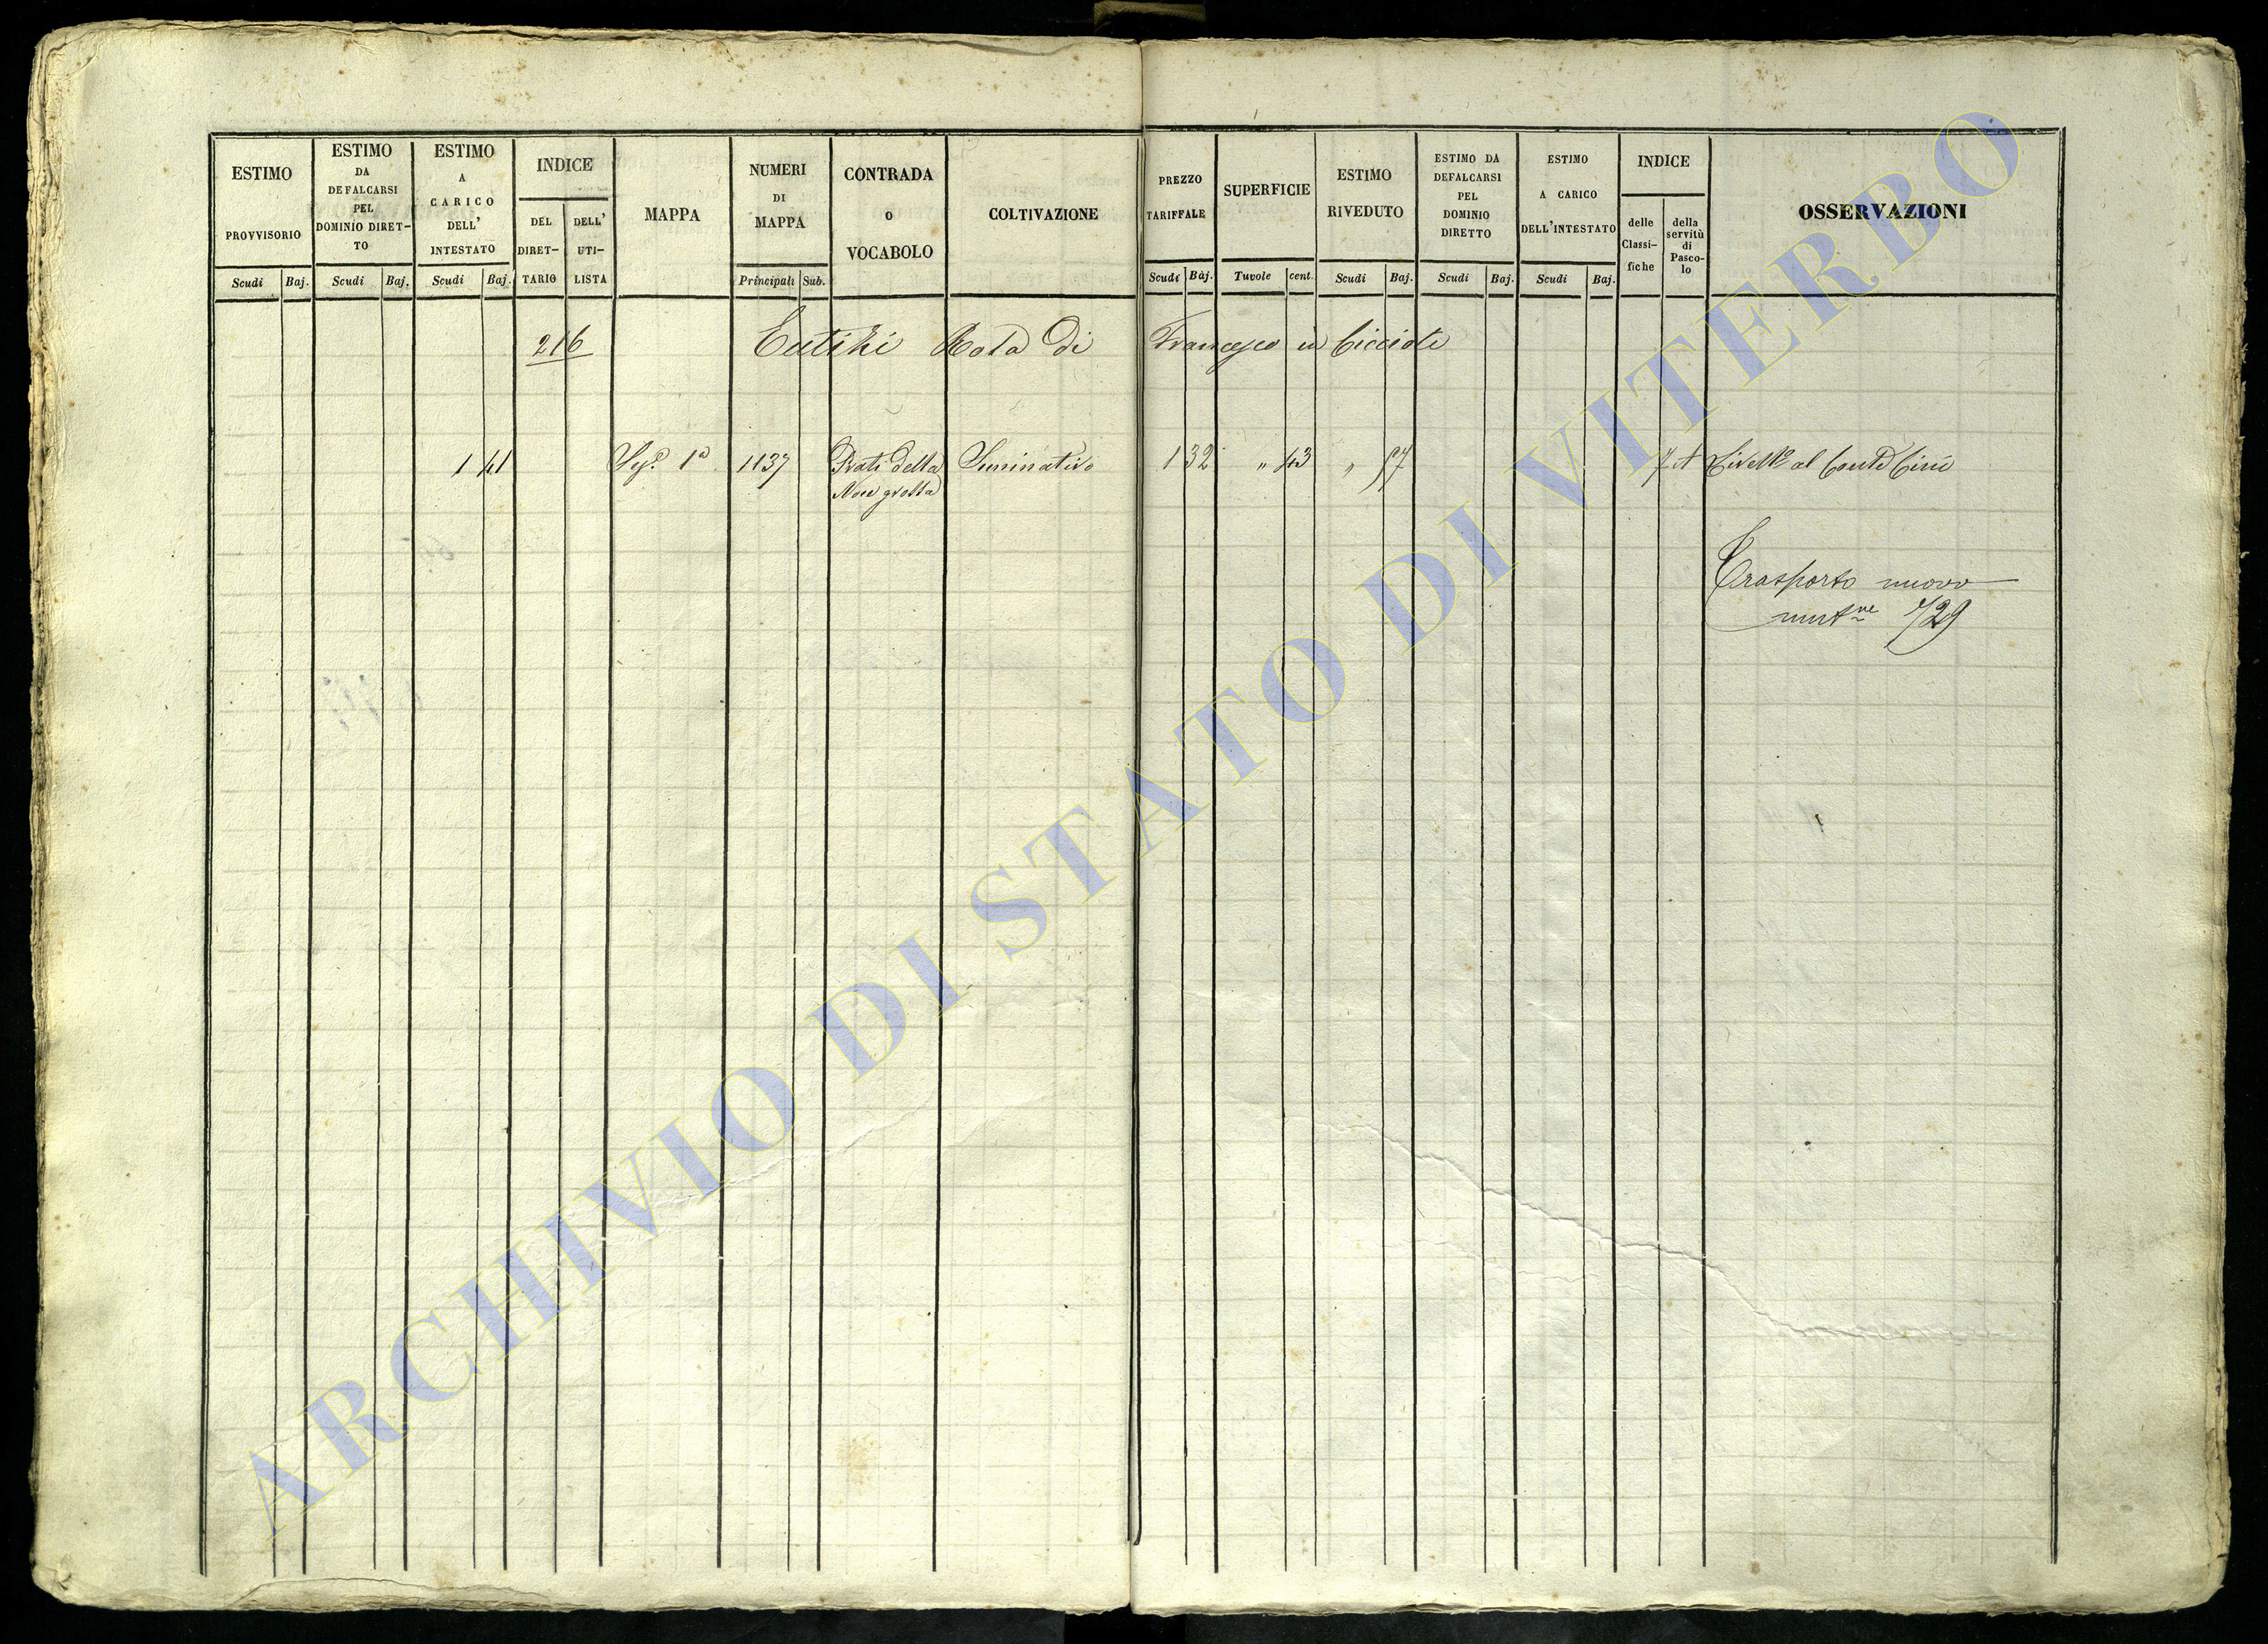 ESTIMO PROVVISORIO
Scudi Baj.
ESTIMO DA DEFALCARSI PEL DOMINIO DIRET-TO
Scudi Baj.
ESTIMO A CARICO DELL' INTESTATO
Scudi Baj.
INDICE
DEL DIRET-TARIO
DELL' UTI-LISTA
MAPPA
NUMERI DI MAPPA
Principali Sub.
CONTRADA O VOCABOLO
COLTIVAZIONE
PREZZO TARIFFALE
Scudi Baj.
SUPERFICIE
Tavole cent.
ESTIMO RIVEDUTO
Scudi Baj.
ESTIMO DA DEFALCARSI PEL DOMINIO DIRETTO
Scudi Baj.
ESTIMO A CARICO DELL'INTESTATO
Scudi Baj.
INDICE
delle Classi-fiche
della servitù di Pasco-lo
OSSERVAZIONI
216 Eutizi Rosa Di Francesco in Ciccioli
1 41 Sez.e 1a 1137 Prati della Seminativo 1 32 " 43 " 57 7 A Livell.o al Conte Cini
Noce grossa
Trasporto nuovo
mut.ne 729
ARCHIVIO DI STATO DI VITERBO